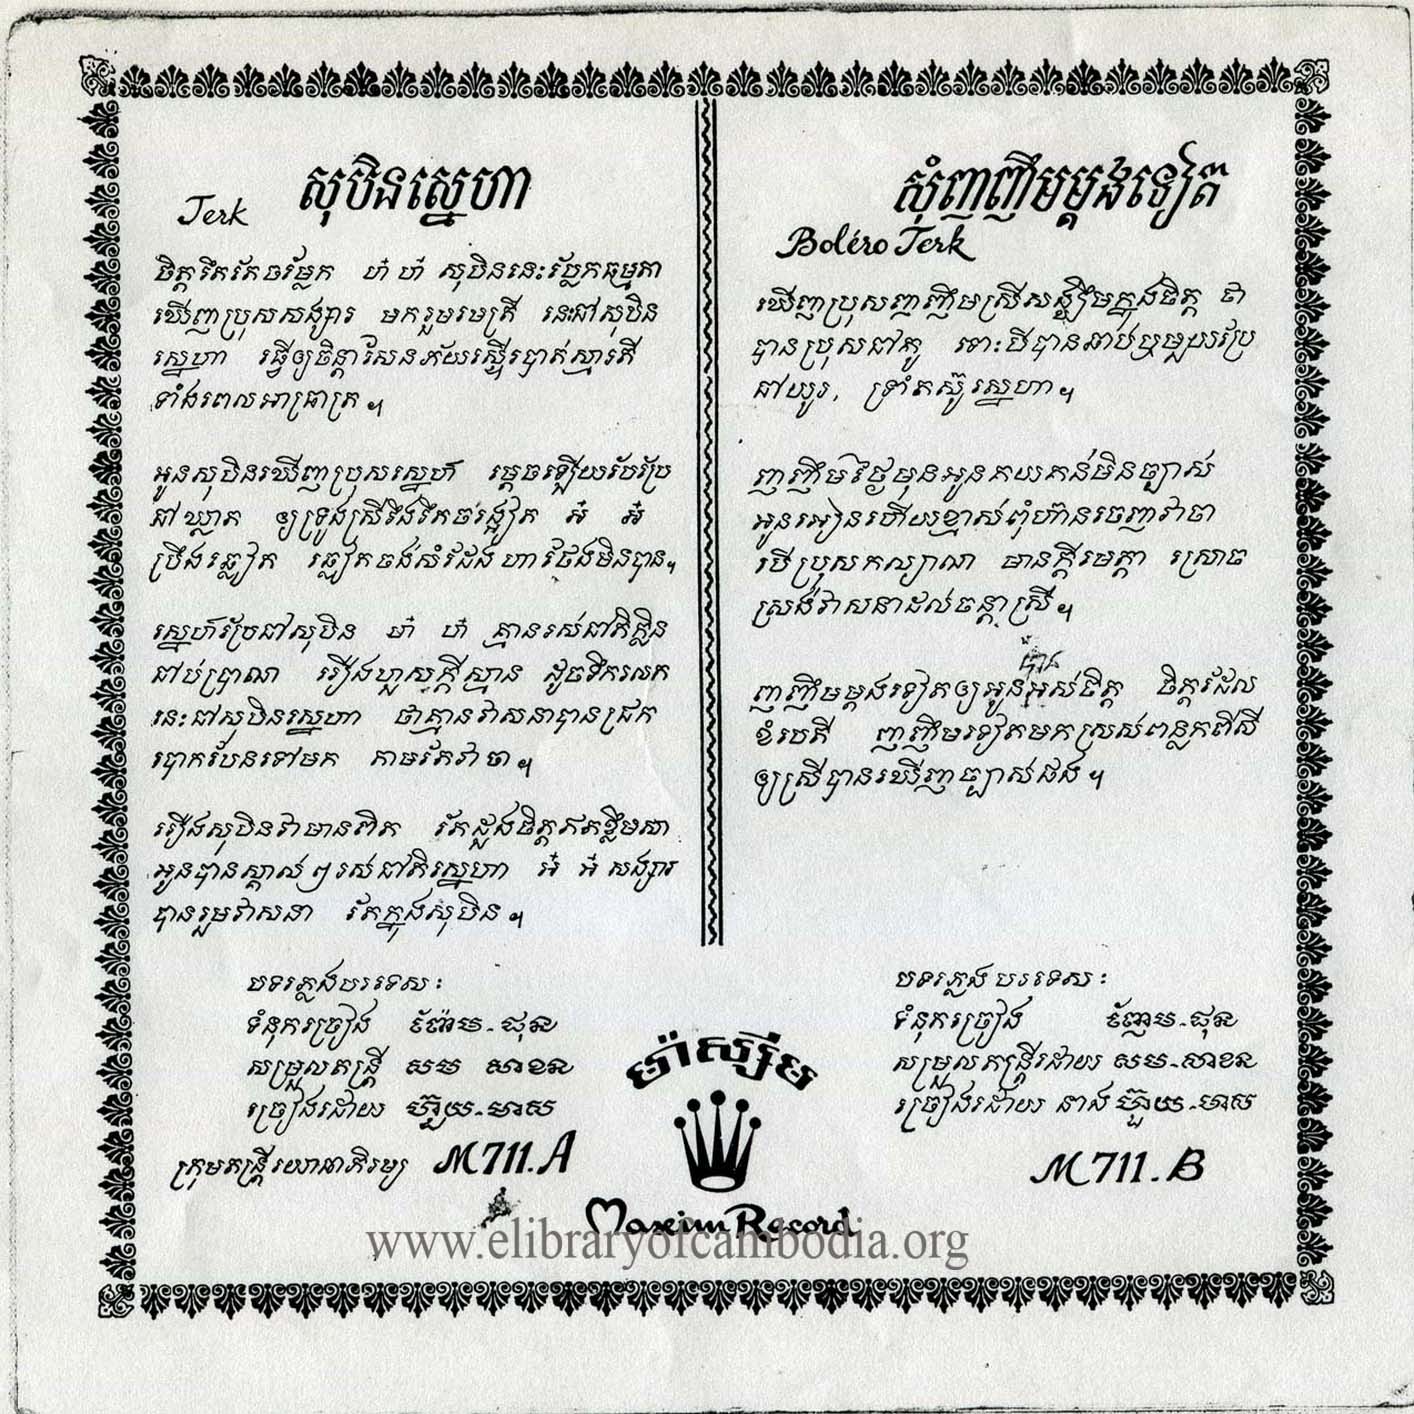 សុបិនស្នេហា
Jerk
ចិត្តនឹកតែចម្លែក ហ៎ ហ៎ សុបិននេះប្លែកធម្មតា
ឃើញប្រុសសង្សារ មករួមមេត្រី នេះជាសុបិន
ស្នេហា ធ្វើឲ្យចិន្តាសែនភ័យស្ទើរបាត់ស្មារតី
ទាំងពេលអាធ្រាត្រ ។
អូនសុបិនឃើញប្រុសស្នេហ៍ ម្ដេចឡើយបែរប្រែ
ជាឃ្លាត ឲ្យទ្រូងស្រីរឹងរឹតចង្អៀត អ៎ អ៎
ប្រឹងឆ្លៀត ឆ្លៀតចង់សំដែង ហាថែងមិនបាន។
ស្នេហ៍ប្រែជាសុបិន ហ៎ ហ៎ គ្មានរស់ជាតិក្លិន
ជាប់ប្រាណ រឿងហួសក្ដីស្មាន ដូចទឹករលក
នេះជាសុបិនស្នេហា ថាគ្មានវាសនាបានជ្រក
បោកបែនទៅមក តាមតែវាចា ។
រឿងសុបិនវាមានពិត តែដួងចិត្តឥតខ្លឹមសា
អូនបានស្គាល់ៗរស់ជាតិស្នេហា អ៎ អ៎ សង្សារ
បានរួមវាសនា តែក្នុងសុបិន ។
បទភ្លេងបរទេស :
ទំនុកច្រៀង ញ៉ែម-ជុន
សម្រួលតន្ត្រី សម សាខន
ច្រៀងដោយ ហ៊ួយ-មាស
ក្រុមតន្ត្រីយោធាភិរម្យ M711.A
សុំញញឹមម្ដងទៀត
Boléro Jerk
ឃើញប្រុសញញឹមស្រីសង្ឃឹមក្នុងចិត្ត ថា
បានប្រុសជាគូ ទោះបីបានឆាប់ឬមួយប្រែ
ជាយូរ, ទ្រាំតស៊ូស្នេហា ។
ញញឹមថ្ងៃមុនអូនគយគន់មិនច្បាស់
អូនអៀនហើយខ្មាស់ពុំហ៊ានចេញវាចា
បើប្រុសកល្យាណ មានក្ដីមេត្តា ស្រោច
ស្រង់វាសនាដល់ចន្ដាស្រី ។
បាន
ញញឹមម្ដងទៀតឲ្យអូនអស់ចិត្ត ចិត្តដែល
ខំបេតី ញញឹមទៀតមកស្រស់ពន្លកពិសី
ឲ្យស្រីបានឃើញច្បាស់ផង ។
បទភ្លេងបរទេស :
ទំនុកច្រៀង ញ៉ែម-ជុន
សម្រួលតន្ត្រីដោយ សម-សាខន
ច្រៀងដោយ នាង ហ៊ួយ-មាស
M711.B
ម៉ាស្ស៊ីម
Maxim Record
www.elibraryofcambodia.org